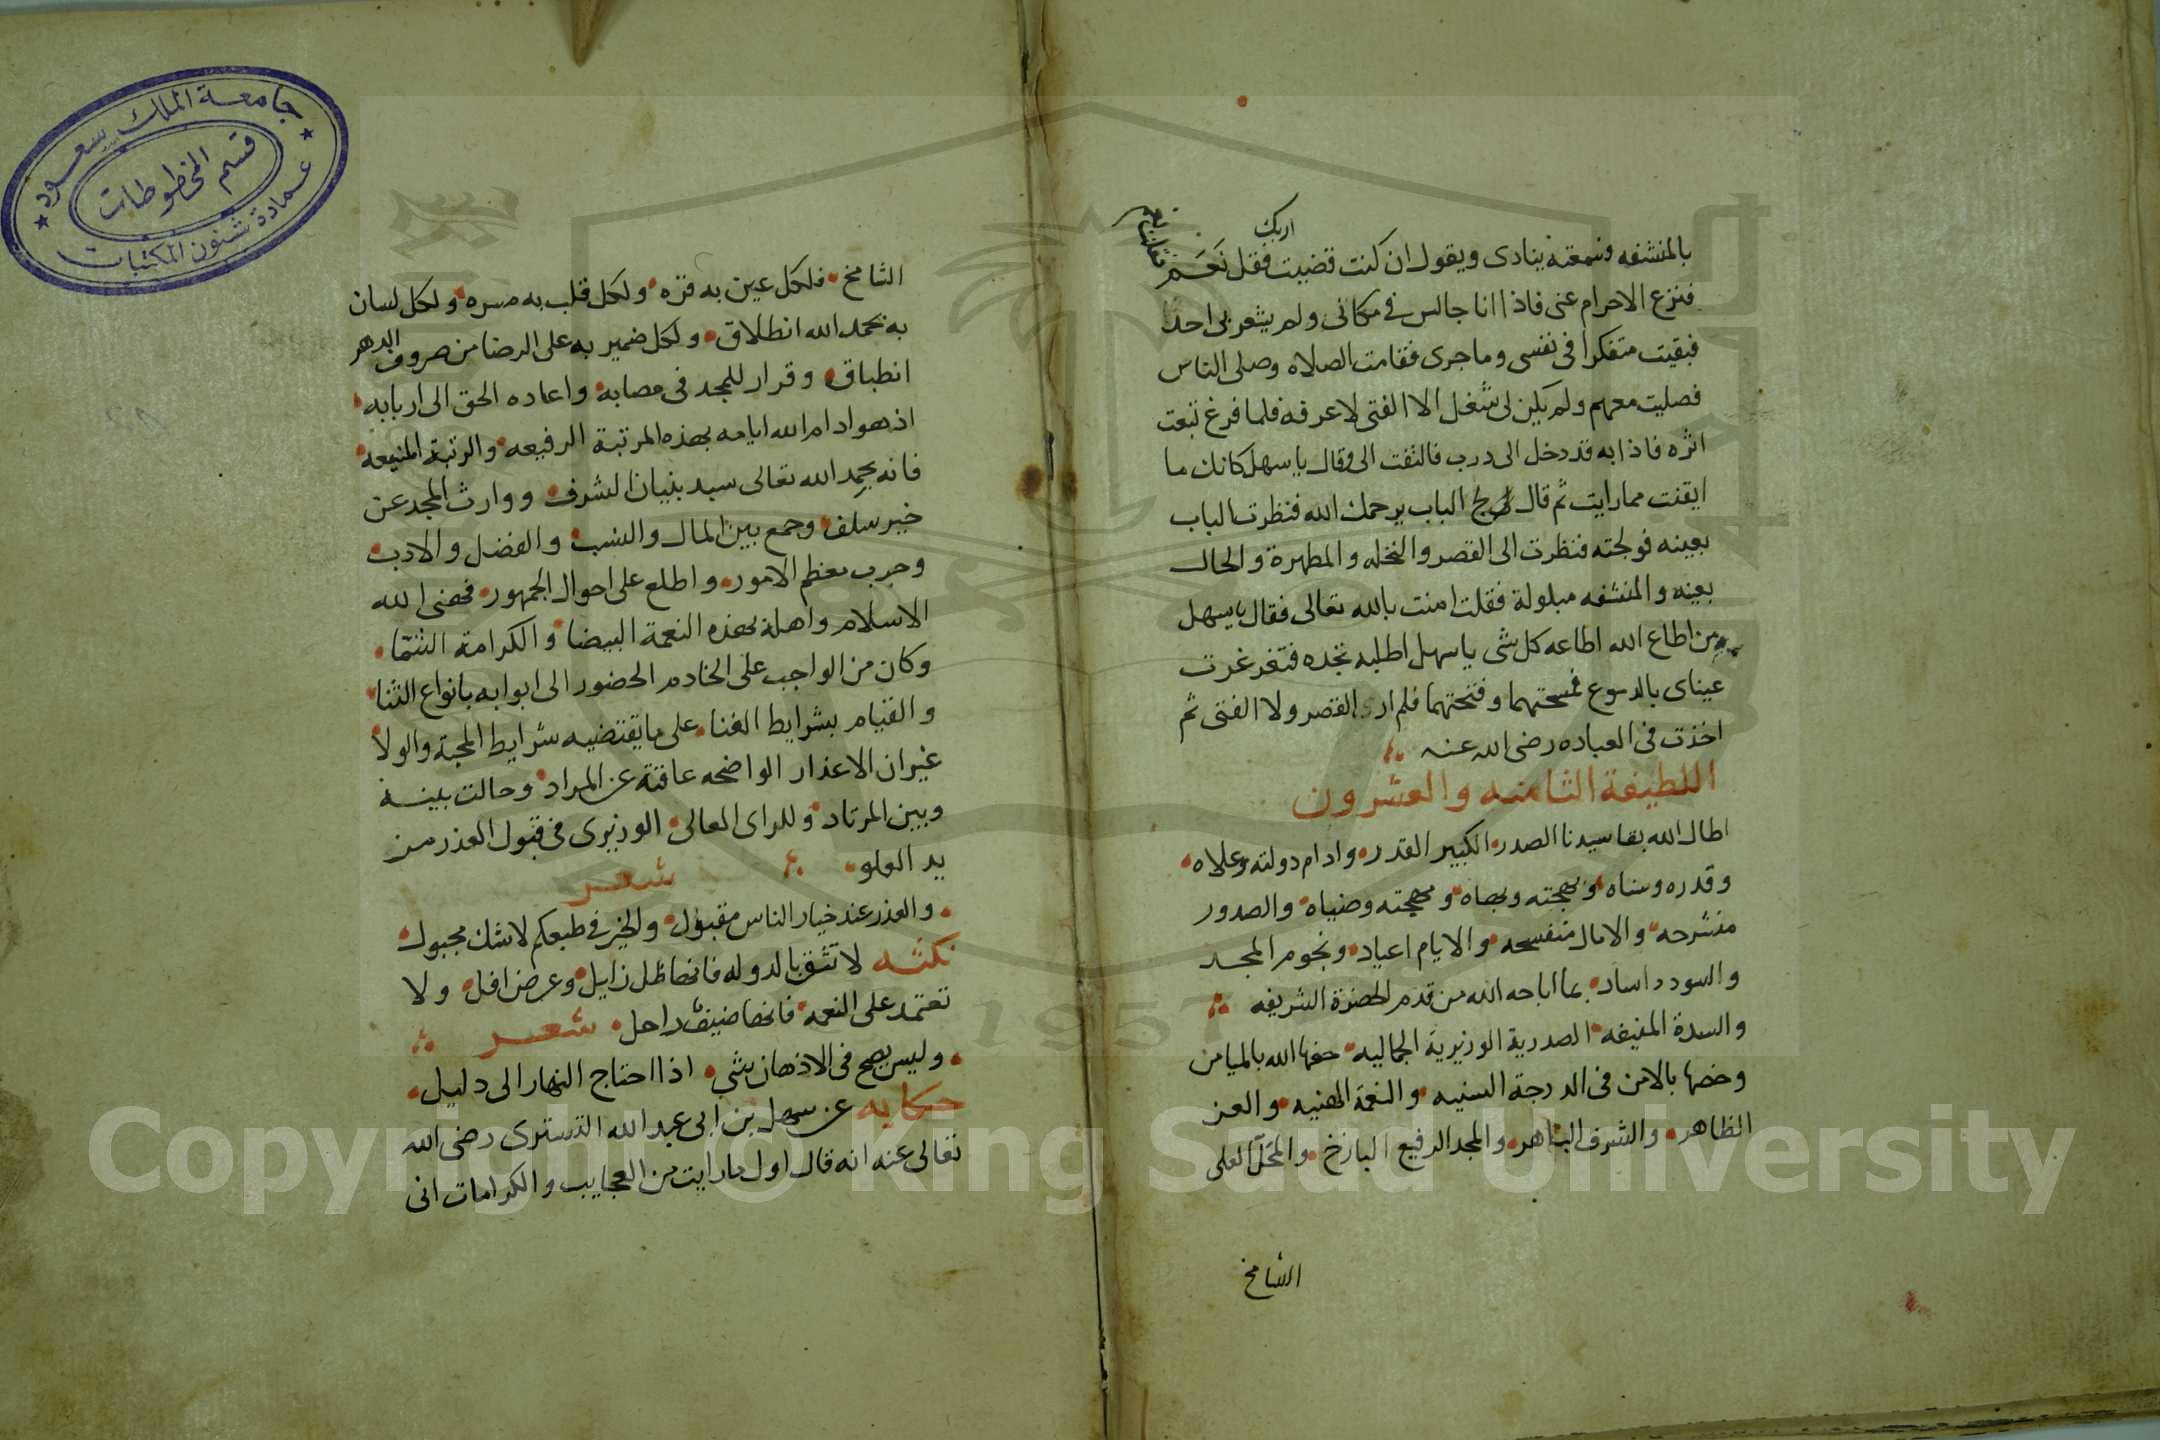 اربك
بالمنشفه وسمعته ينادى ويقول ان كنت قضيت فقل نَعَم
فنزع الاحرام عنى فاذا انا جالس فى مكانى ولم يشعر بى احد
فبقيت متفكرا فى نفسى وما جرى فقامت الصلاه وصلى الناس
فصليت معهم ولم يكن لى شغل الا الفتى لاعرفه فلما فرغ تبعت
اثره فاذا به قد دخل الى درب فالتفت الى وقال يا سهل كانك ما
ايقنت مما رايت ثم قال لج الباب يرحمك الله فنظرت الباب
بعينه فولجته فنظرت الى القصر والنخله والمطهرة والحال
بعينه والمنشفه مبلولة فقلت امنت بالله تعالى فقال يا سهل
من اطاع الله اطاعه كل شى يا سهل اطلبه تجده فتغرغرت
عيناى بالدموع فمسحتهما وفتحتهما فلم ارى القصر ولا الفتى ثم
اخذت فى العباده رضى الله عنه
اللطيفة الثامنه والعشرون
اطال الله بقا سيدنا الصدر الكبير القدر وادام دولته وعلاه
وقدره وسناه وبهجته وبهاه ومهجته وضياه والصدور
منشرحه والامال منفسحه والايام اعياد ونجوم المجد
والسودد اساد بما اباحه الله من قدم الحضرة الشريفه
والسدة المنيفه الصدرية الوزيرية الجماليه حفها الله بالميامن
وخصها بالامن فى الدرجة السنيه والنعمة الهنيه والعز
الظاهر والشرف الباهر والمجد الرفيع الباذخ والمحل العلى
الشامخ
الشامخ فلكل عين به قره ولكل قلب به مسره ولكل لسان
به بحمد الله انطلاق ولكل ضمير به على الرضا من صروف الدهر
انطباق وقرار للمجد فى مصابه واعاده الحق الى اربابه
اذ هو ادام الله ايامه بهذه المرتبة الرفيعه والرتبة المنيعه
فانه بحمد الله تعالى سيد بنيان الشرف ووارث المجد عن
خير سلف وجمع بين المال والنسب والفضل والادب
وجرب معظم الامور واطلع على احوال الجمهور فهنى الله
الاسلام واهله بهذه النعمة البيضا والكرامة الشمّا
وكان من الواجب على الخادم الحضور الى ابوابه بانواع الثنا
والقيام بشرايط الغنا على ما يقتضيه شرايط المحبة والولا
غير ان الاعذار الواضحه عاقته عن المراد وحالت بينه
وبين المرتاد وللراى العالى الوزيرى فى قبول العذر من
يد العلو شعر
والعذر عند خيار الناس مقبول والخير فى طبعكم لا شك مجبول
نكته لا تثق بالدوله فانها ظل زايل وعرض افل ولا
تعتمد على النعمه فانها ضيف راحل شعر
وليس يصح فى الاذهان شى اذا احتاج النهار الى دليل
حكايه عن سهل بن ابى عبد الله التسترى رضى الله
تعالى عنه انه قال اول ما رايت من العجايب والكرامات انى
جامعة الملك سعود
قسم المخطوطات
عمادة شئون المكتبات
1957
Copyright © King Saud University